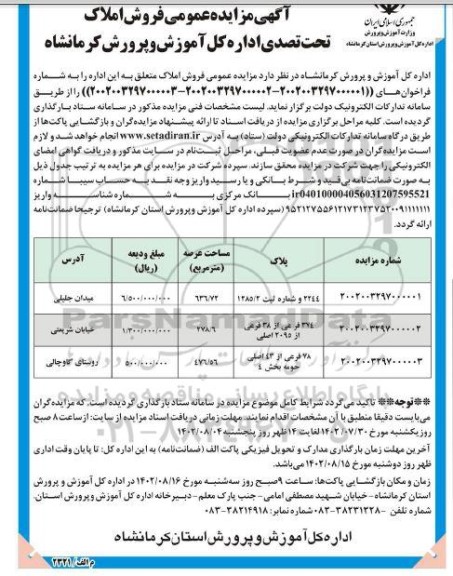 آگهی مزایده عمومی فروش املاک
تحت تصدی اداره کل آموزش و پرورش کرمانشاه
جمهوری اسلامی ایران
وزارت آموزش و پرورش
اداره کل آموزش و پرورش استان کرمانشاه
اداره کل آموزش و پرورش کرمانشاه در نظر دارد مزایده عمومی فروش املاک متعلق به این اداره را به شماره
فراخوان‌های ((۲۰۰۲۰۰۳۲۹۷۰۰۰۰۰۱-۲۰۰۲۰۰۳۲۹۷۰۰۰۰۰۲-۲۰۰۲۰۰۳۲۹۷۰۰۰۰۰۳)) را از طریق
سامانه تدارکات الکترونیک دولت برگزار نماید. لیست مشخصات فنی مزایده مذکور در سامانه ستاد بارگذاری
گردیده است. کلیه مراحل برگزاری مزایده از دریافت اسناد تا ارائه پیشنهاد مزایده‌گران و بازگشایی پاکت‌ها از
طریق درگاه سامانه تدارکات الکترونیکی دولت (ستاد) به آدرس www.setadiran.ir انجام خواهد شد و لازم
است مزایده‌گران در صورت عدم عضویت قبلی، مراحل ثبت‌نام در سایت مذکور و دریافت گواهی امضای
الکترونیکی را جهت شرکت در مزایده محقق سازند. سپرده شرکت در مزایده برای هر مزایده به ترتیب جدول ذیل
به صورت ضمانت‌نامه بی‌قید و شرط بانکی و یا رسید واریز وجه نقد به حساب سیبا شماره
ir040100004056031207595521 بانک مرکزی به شماره شناسه واریز
(سپرده اداره کل آموزش و پرورش استان کرمانشاه) ترجیحا ضمانت‌نامه
ارائه گردد.
شماره مزایده | پلاک | مساحت عرصه (مترمربع) | مبلغ ودیعه (ریال) | آدرس
۲۰۰۲۰۰۳۲۹۷۰۰۰۰۰۱ | ۲۲۴۴ و شماره ثبت ۱۲۸۵/۲ | ۶۳۶/۷۲ | ۶/۵۰۰/۰۰۰/۰۰۰ | میدان جلیلی
۲۰۰۲۰۰۳۲۹۷۰۰۰۰۰۲ | ۳۷۴ فرعی از ۳۸ فرعی از ۲۰۹۵ اصلی | ۲۷۸/۶ | ۱/۳۰۰/۰۰۰/۰۰۰ | خیابان شریعتی
۲۰۰۲۰۰۳۲۹۷۰۰۰۰۰۳ | ۷۸ فرعی از ۴۳ اصلی حومه بخش ۴ | ۴۷۶/۵۶ | ۵۰۰/۰۰۰/۰۰۰ | روستای گاوچالی
**توجه** تاکید می‌گردد شرایط کامل موضوع مزایده در سامانه ستاد بارگذاری گردیده است. که مزایده‌گران
می‌بایست دقیقا منطبق با آن مشخصات اقدام نمایند. مهلت زمانی دریافت اسناد مزایده از سایت: از ساعت ۸ صبح
روز یکشنبه مورخ ۱۴۰۲/۰۷/۳۰ لغایت ۱۴ ظهر روز پنجشنبه ۱۴۰۲/۰۸/۰۴
آخرین مهلت زمان بارگذاری مدارک و تحویل فیزیکی پاکت الف (ضمانت‌نامه) به این اداره کل: تا پایان وقت اداری
ظهر روز دوشنبه مورخ ۱۴۰۲/۰۸/۱۵ می‌باشد.
زمان و مکان بازگشایی پاکت‌ها: ساعت ۹ صبح روز سه‌شنبه مورخ ۱۴۰۲/۰۸/۱۶ در اداره کل آموزش و پرورش
استان کرمانشاه- خیابان شهید مصطفی امامی- جنب پارک معلم - دبیرخانه اداره کل آموزش و پرورش استان.
شماره تلفن ۳۸۲۳۱۲۲۸-۰۸۳ شماره نمابر: ۳۸۲۱۴۹۱۸-۰۸۳
اداره کل آموزش و پرورش استان کرمانشاه
م الف/۲۳۲۱